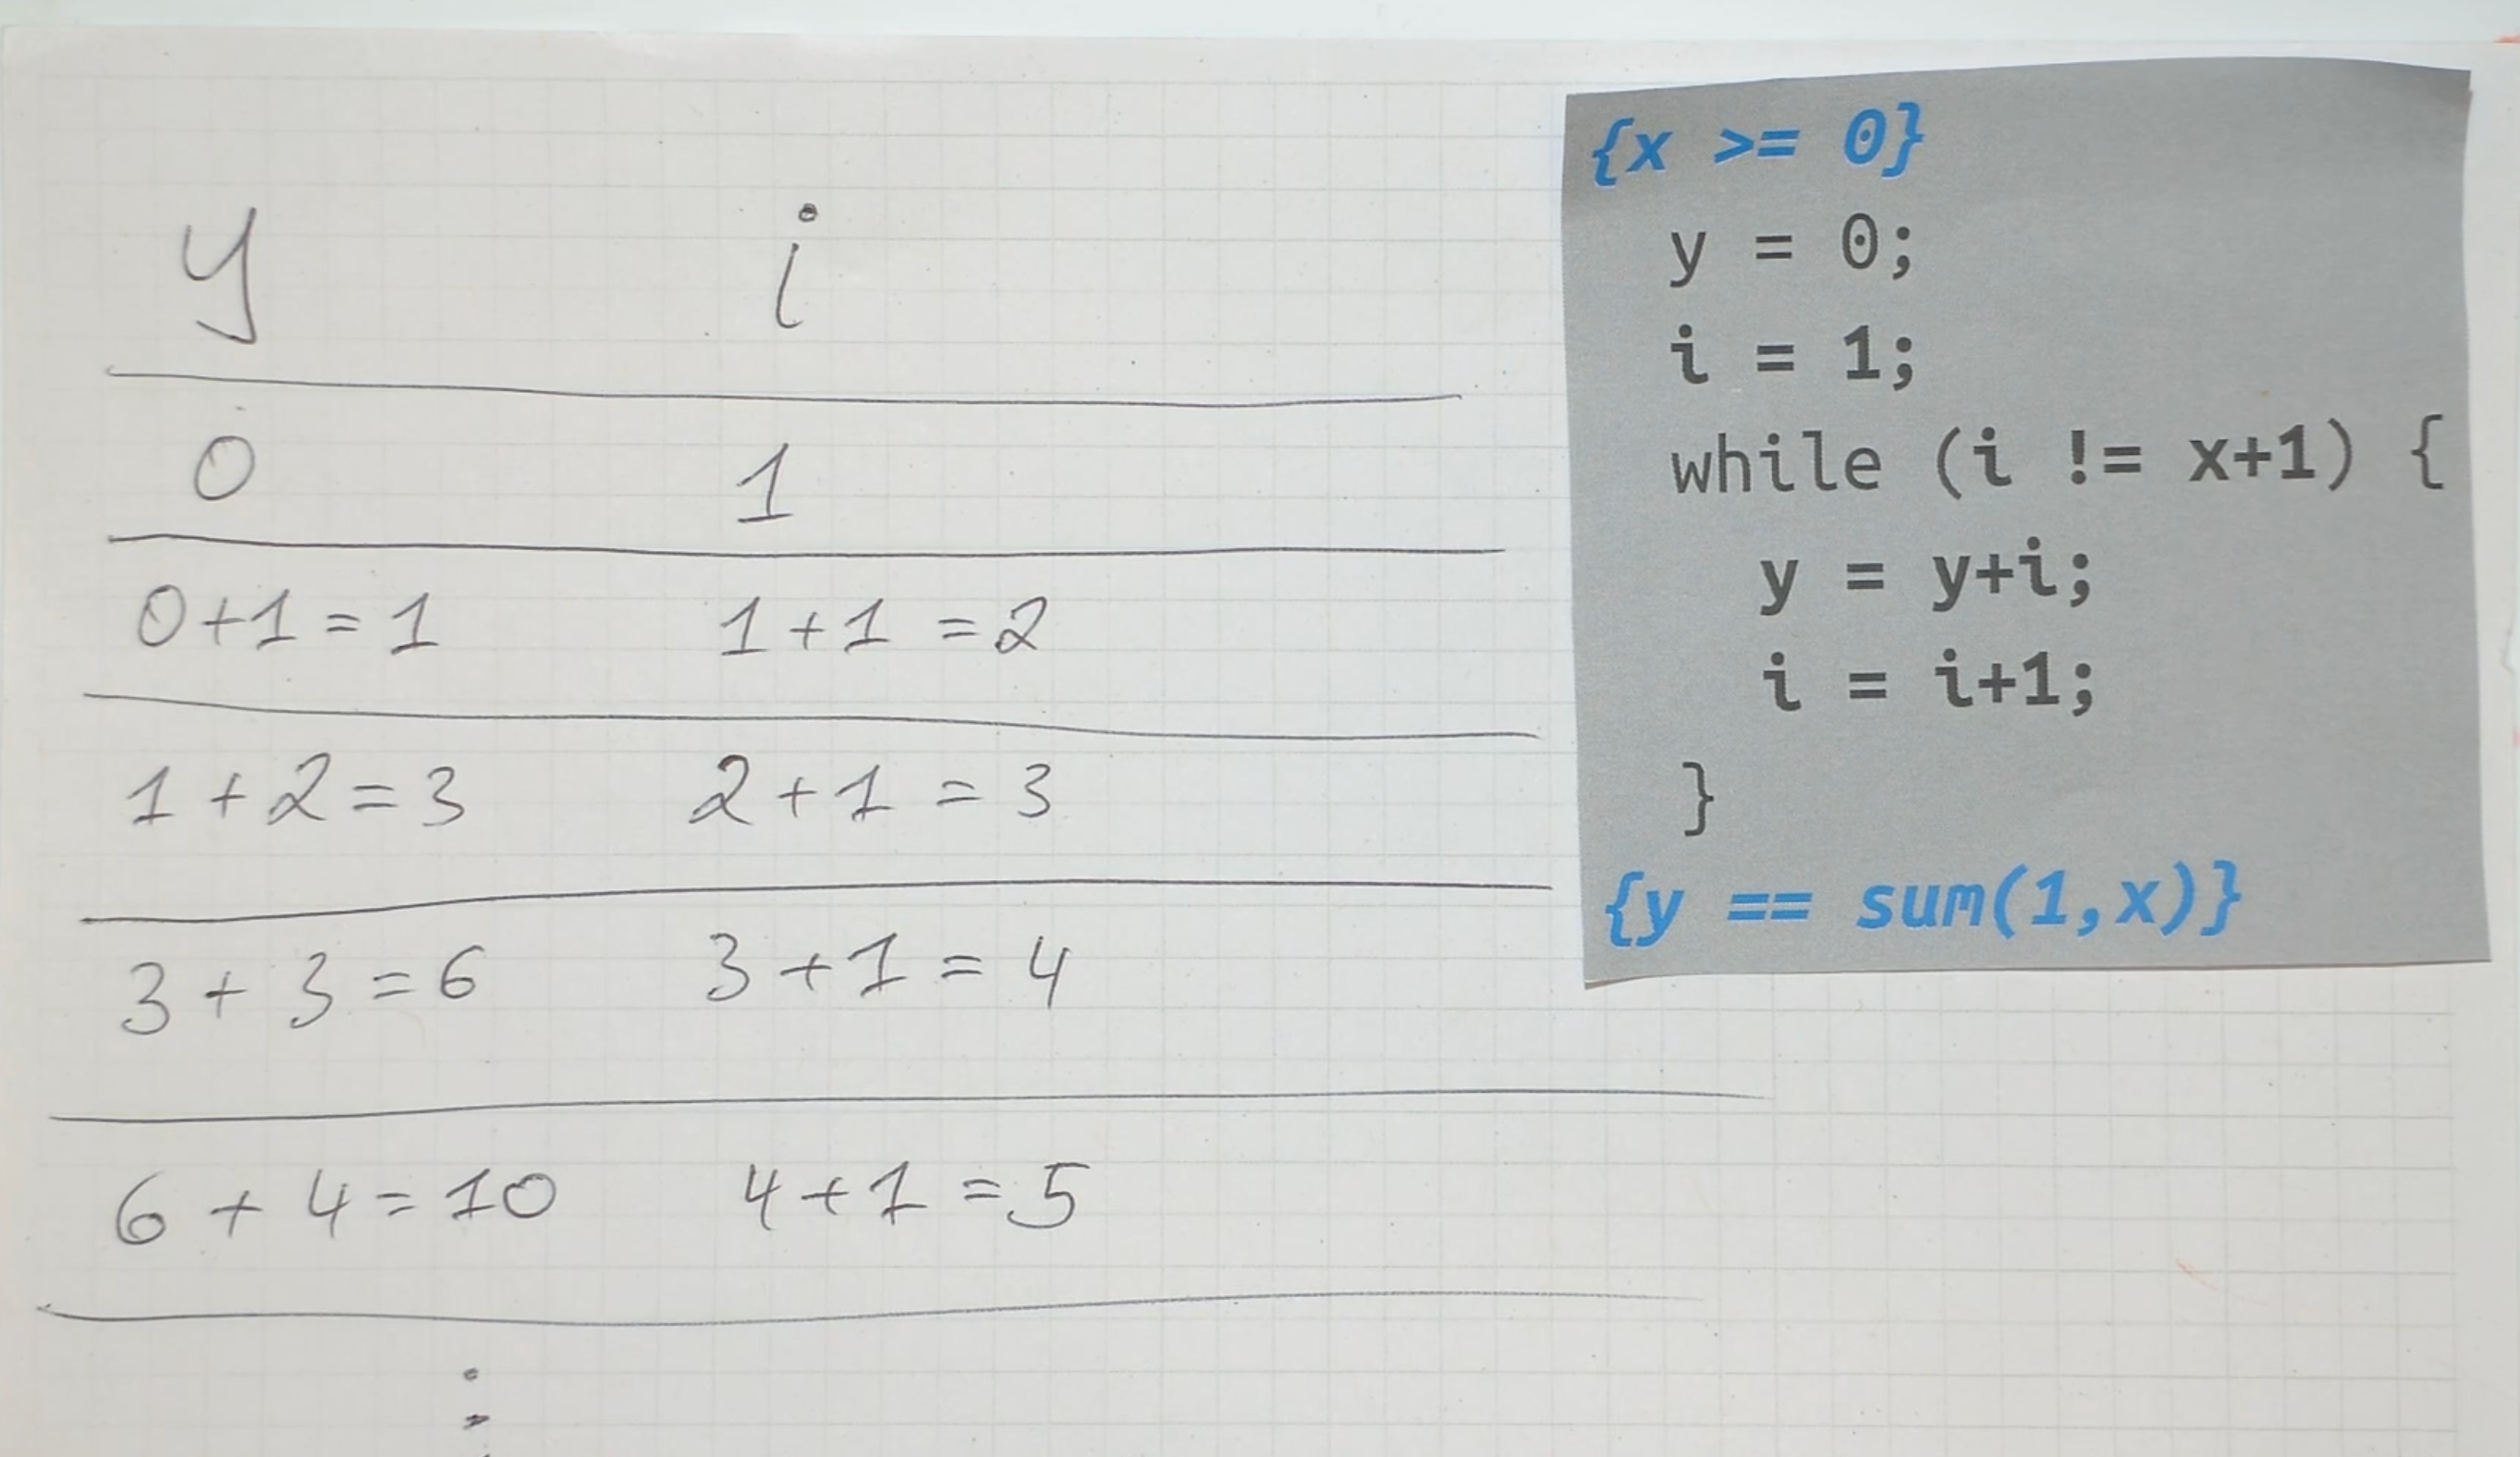 y i
0 1
0+1=1 1+1=2
1+2=3 2+1=3
3+3=6 3+1=4
6+4=10 4+1=5
{x >= 0}
y = 0;
i = 1;
while (i != x+1) {
y = y+i;
i = i+1;
}
{y == sum(1,x)}